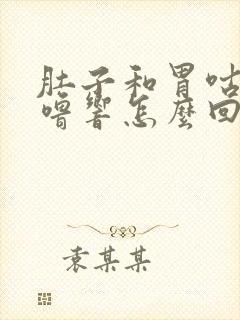 肚子和胃咕
噜響怎麼回
袁某某